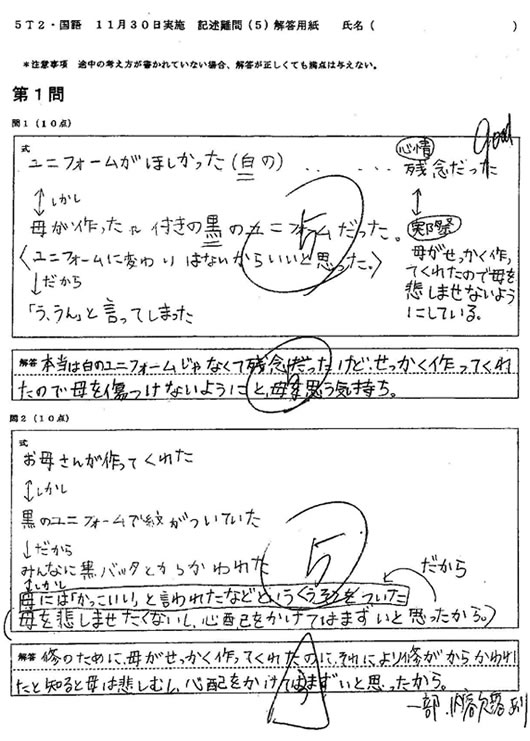 5T2・国語 11月30日実施 記述難問(5)解答用紙 氏名( )
*注意事項 途中の考え方が書かれていない場合、解答が正しくても満点は与えない。
第1問
問1(10点)
good
式
ユニフォームがほしかった(白の) ・・・・・・ 心情 残念だった
↕しかし
母が作った 付きの黒のユニフォームだった。
〈ユニフォームに変わりはないからいいと思った。〉
↓だから
「う、うん」と言ってしまった
実際
母がせっかく作っ
てくれたので母を
悲しませないよう
にしている。
5
解答 本当は白のユニフォームじゃなくて残念だったけど、せっかく作ってくれ
たので母を傷つけないようにと、母を思う気持ち。
5
問2(10点)
式
お母さんが作ってくれた
↕しかし
黒のユニフォームで紋がついていた
↓だから
みんなに黒バッタとからかわれた
↕しかし
母には「かっこいい」と言われたなどというウソをついた
だから
(母を悲しませたくないし、心配をかけてはまずいと思ったから。)
5
解答 修のために、母がせっかく作ってくれたのに、それにより修がからかわれ
たと知ると母は悲しむし、心配をかけてはまずいと思ったから。
一部、内容